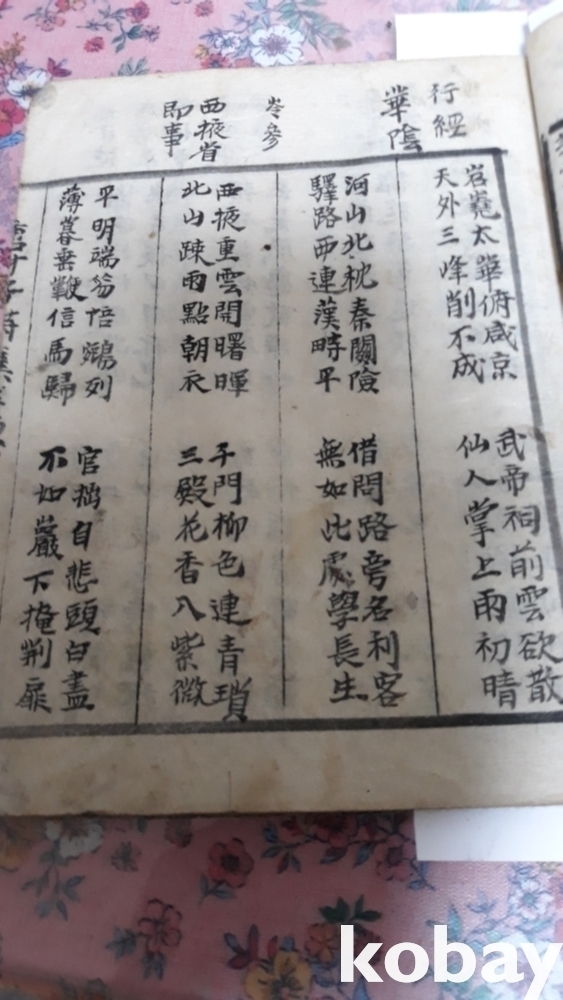 行經
華陰
岧嶤太華俯咸京
天外三峰削不成
武帝祠前雲欲散
仙人掌上雨初晴
河山北枕秦關險
驛路西連漢畤平
借問路旁名利客
無如此處學長生
岑參
西掖省
即事
西掖重雲開曙暉
北山疎雨點朝衣
千門柳色連青瑣
三殿花香入紫微
平明端笏悟鵷列
薄暮垂鞭信馬歸
官拙自悲頭白盡
不如巖下掩荊扉
kobay